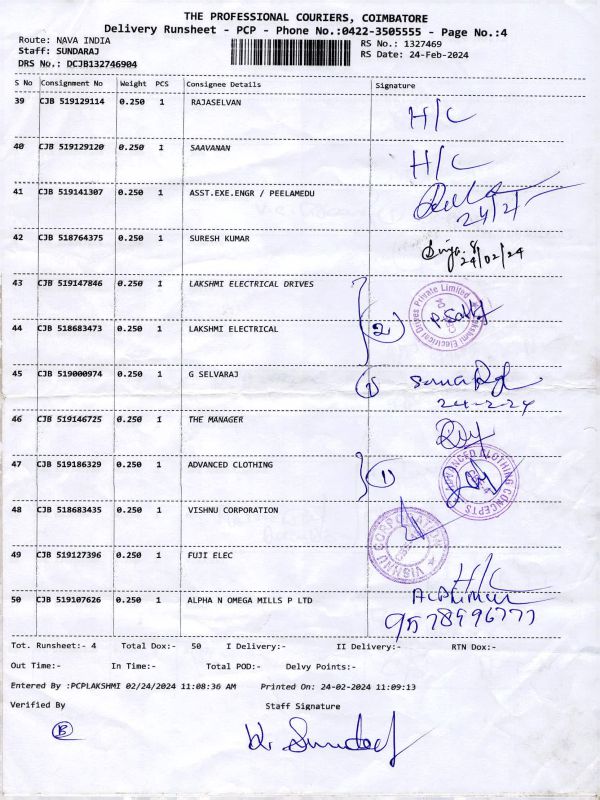 THE PROFESSIONAL COURIERS, COIMBATORE
Delivery Runsheet - PCP - Phone No.:0422-3505555 - Page No.:4
Route: NAVA INDIA
RS No.: 1327469
Staff: SUNDARAJ
RS Date: 24-Feb-2024
DRS No.: DCJB132746904
S No Consignment No Weight PCS Consignee Details Signature
39 CJB 519129114 0.250 1 RAJASELVAN H/C
40 CJB 519129120 0.250 1 SAAVANAN H/C
41 CJB 519141307 0.250 1 ASST.EXE.ENGR / PEELAMEDU
24/2/
42 CJB 518764375 0.250 1 SURESH KUMAR
24/02/24
43 CJB 519147846 0.250 1 LAKSHMI ELECTRICAL DRIVES
Lakshmi Electrical Drives Private Limited
2
44 CJB 518683473 0.250 1 LAKSHMI ELECTRICAL
45 CJB 519000974 0.250 1 G SELVARAJ
24-2-24
46 CJB 519146725 0.250 1 THE MANAGER
47 CJB 519186329 0.250 1 ADVANCED CLOTHING 1
ADVANCED CLOTHING CONCEPTS
48 CJB 518683435 0.250 1 VISHNU CORPORATION
49 CJB 519127396 0.250 1 FUJI ELEC H/C
50 CJB 519107626 0.250 1 ALPHA N OMEGA MILLS P LTD
Tot. Runsheet:- 4 Total Dox:- 50 I Delivery:- II Delivery:- RTN Dox:-
Out Time:- In Time:- Total POD:- Delvy Points:-
Entered By :PCPLAKSHMI 02/24/2024 11:08:36 AM Printed On: 24-02-2024 11:09:13
Verified By Staff Signature
B